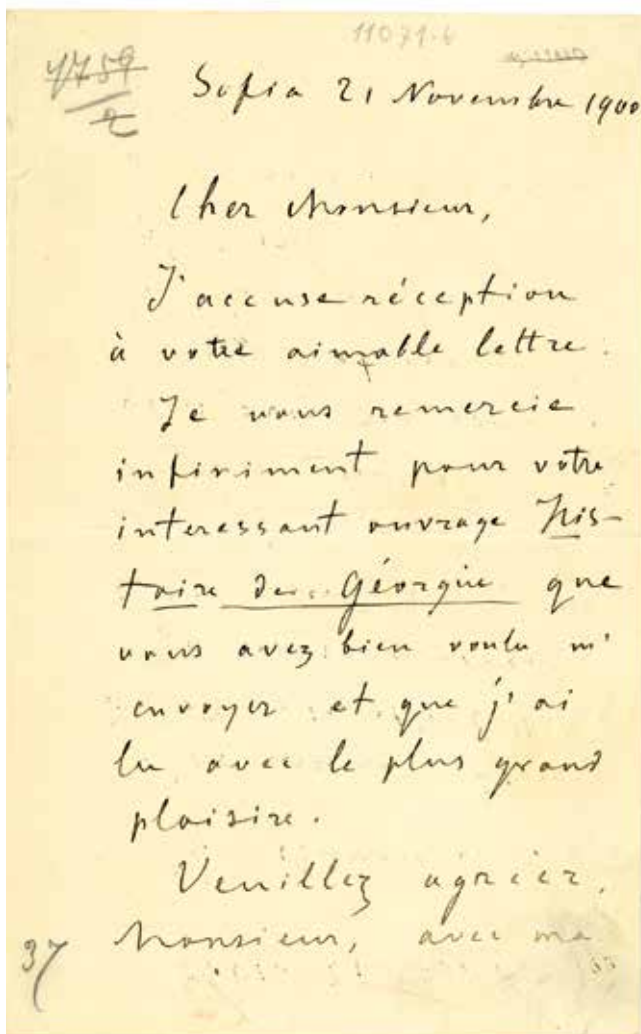 11071-6
4759
2
Sofia 21 Novembre 1900
Cher Monsieur,
J'accuse réception
à votre aimable lettre.
Je vous remercie
infiniment pour votre
interessant ouvrage His-
toire de Géorgie que
vous avez bien voulu m'
envoyer et que j'ai
lu avec le plus grand
plaisire.
Veuillez agréer,
Monsieur, avec ma
37